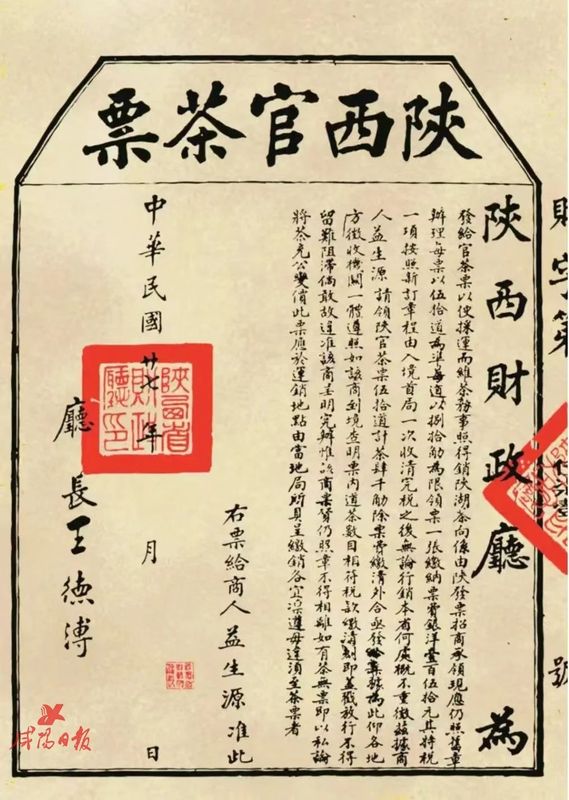 陝西官茶票
財字第
號
陝西財政廳為
發給官茶票以便採運而維茶務事照得銷陝湖茶向係由陝發票招商承領現應仍照舊章
辦理每票以伍拾道為準每道以捌拾觔為限領票一張繳納票費銀洋壹百伍拾元其特稅
一項按照新訂章程由入境首局一次收清完稅之後無論行銷本省何處概不重徵茲據商
人益生源請領陝官茶票伍拾道計茶肆千觔除票費繳清外合亟發給票據為此仰各地
方徵收機關一體遵照如該商到境查明票內道茶數目相符稅款繳清刻即蓋戳放行不得
留難阻滯倘敢故違准該商呈明究辦惟茶商票貨仍照章不得相離如有茶無票即以私論
將茶充公變價此票應於運銷地點由當地局所具呈繳銷各宜凜遵毋違須至茶票者
右票給商人益生源准此
中華民國廿七年 月 日
陝西省財政廳印
廳長王德溥
咸陽日报